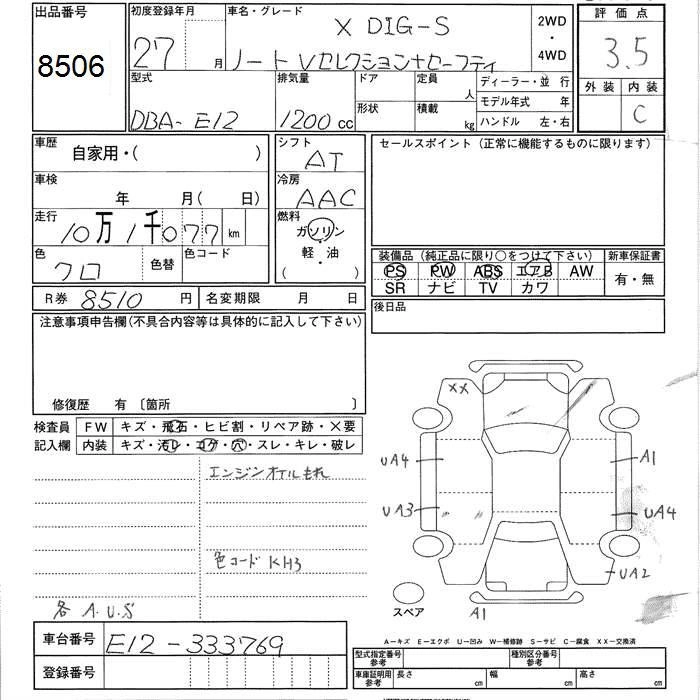 出品番号
8506
初度登録年月
27 月
車名・グレード
X DIG-S
ノート Vセレクション+セーフティ
2WD
・
4WD
評価点
3.5
外装 内装
C
型式
DBA-E12
排気量
1200 cc
ドア
形状
定員
人
積載
kg
ディーラー・並 行
モデル年式 年
ハンドル 左・右
車歴
自家用・( )
車検
年 月( 日)
走行
10万1千077 km
色
クロ
色替
色コード
シフト
AT
冷房
AAC
燃料
ガソリン
軽・油
( )
R券 8510 円
名変期限 月 日
セールスポイント (正常に機能するものに限ります)
装備品 (純正品に限り○をつけて下さい)
PS PW ABS エアB AW
SR ナビ TV カワ
新車保証書
有・無
後日品
注意事項申告欄(不具合内容等は具体的に記入して下さい)
修復歴 有 〔箇所 〕
検査員
記入欄
FW キズ・飛石・ヒビ割・リペア跡・×要
内装 キズ・汚レ・コゲ・穴・スレ・キレ・破レ
エンジンオイルもれ
色コード KH3
各 A.U.S
XX
UA4
UA3
A1
UA4
UA2
A1
スペア
A-キズ E-エクボ U-凹み W-補修跡 S-サビ C-腐食 XX-交換済
車台番号 E12-333769
登録番号
型式指定番号
参考
種別区分番号
参考
車庫証明用
参考
長さ cm
幅 cm
高さ cm